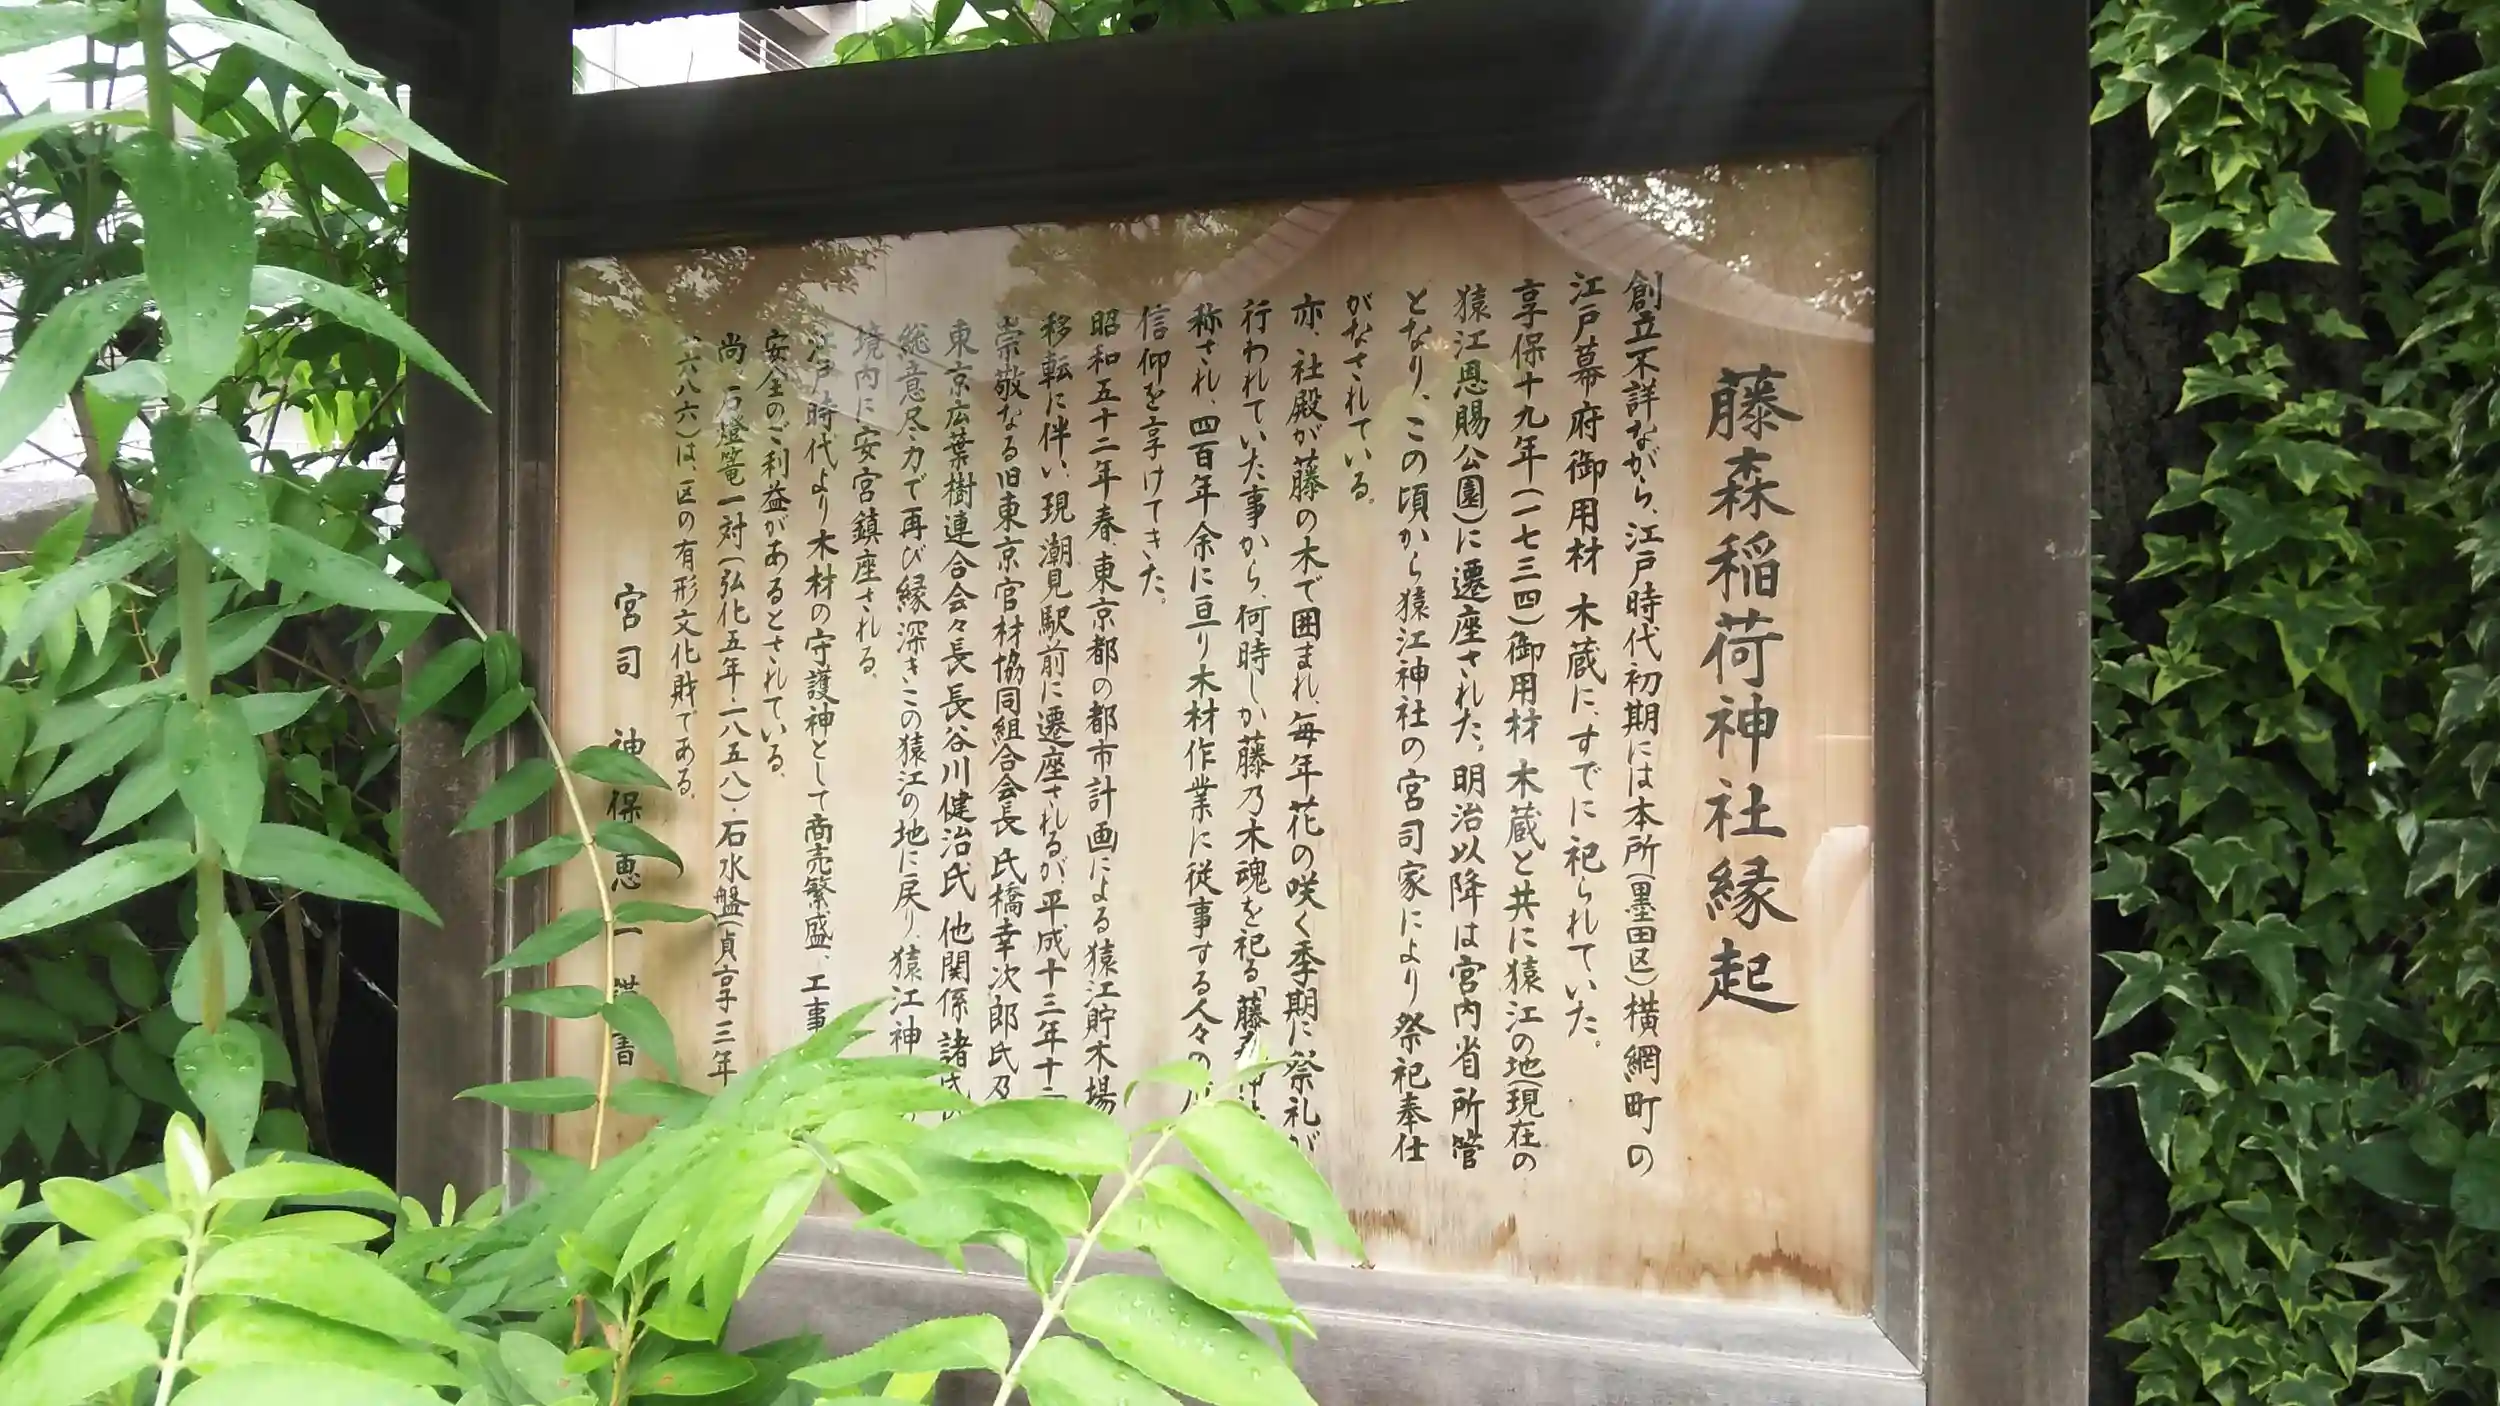 藤森稲荷神社縁起
創立不詳ながら、江戸時代初期には本所(墨田区)横網町の
江戸幕府御用材木蔵に、すでに祀られていた。
享保十九年(一七三四)御用材木蔵と共に猿江の地(現在の
猿江恩賜公園)に遷座された。明治以降は宮内省所管
となり、この頃から猿江神社の宮司家により祭祀奉仕
がなされている。
亦、社殿が藤の木で囲まれ、毎年花の咲く季期に祭礼が
行われていた事から、何時しか藤乃木魂を祀る「藤森神社
称され、四百年余に亘り木材作業に従事する人々の
信仰を享けてきた。
昭和五十二年春、東京都の都市計画による猿江貯木場
移転に伴い、現潮見駅前に遷座されるが平成十三年十二
崇敬なる旧東京官材協同組合会長 氏橋幸次郎氏及
東京広葉樹連合会々長長谷川健治氏 他関係諸氏
総意尽力で再び縁深きこの猿江の地に戻り、猿江神
境内に安宮鎮座される。
江戸時代より木材の守護神として商売繁盛、工事
安全のご利益があるとされている。
尚 石燈篭一対(弘化五年・一八五八)・石水盤(貞享三年
一六八六)は、区の有形文化財である。
宮司 神保恵一 謹書